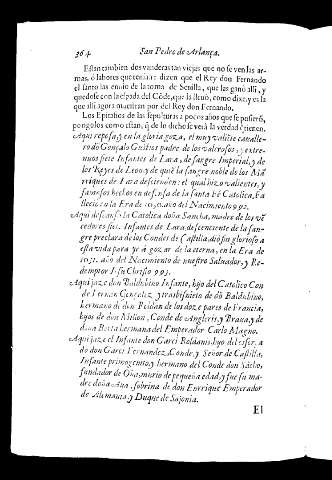 364 San Pedro de Arlança.
Estan tambien dos vanderas tan viejas que no se ven las ar-
mas, ò labores que tenian: dizen que el Rey don Fernando
el santo las enuio de la toma de Seuilla, que las ganò alli, y
quedose con la espada del Cõde, que la lleuò, como dixe, y es la
que alli agora muestran por del Rey don Fernando.
Los Epitafios de las sepulturas a pocos años que se pusierõ,
pongolos como estan, q̃ de lo dicho se verà la verdad q̃ tienen.
Aqui reposa, y en la gloria goza, el muy valiẽte caualle-
ro do Gonçalo Gustios padre de los valerosos, y estre-
nuos siete Infantes de Lara, de sangre Imperial, y de
los Reyes de Leon, y de quiẽ la sangre noble de los Mã
rriques de Lara descienden: el qual hizo valientes, y
famosos hechos en defensa de la santa Fè Catolica, fa
llecio la Era de año del Nacimiento 992.
Aqui descansa la Catolica doña Sancha, madre de los vẽ
cedores siete Infantes de Lara, descendiente de la san-
gre preclara de los Condes de Castilla, diò fin glorioso a
esta vida para yr a gozar de la eterna, en la Era de
1031. año del Nacimiento de nuestro Saluador, y Re-
demptor Iesu Christo 993.
Aqui jaze don Baldubino Infante, hijo del Catolico Con
de Fernan Gonçalez, y trasbisnieto de dõ Baldubino,
hermano de don Roldan de los doze pares de Francia,
hijos de don Millon, Conde de Angleris, y Braua, y de
doña Berta hermana del Emperador Carlo Magno.
Aqui jaze el Infante don Garci Roldanis, hijo del
do don Garci Fernandez, Conde, y Señor de Castilla,
Infante primogenito, y hermano del Conde don Sãcho,
fundador de Oña, murio de pequeña edad, y fue su ma-
dre doña Aua, sobrina de don Enrrique Emperador
de Alemania, y Duque de Saxonia.
El